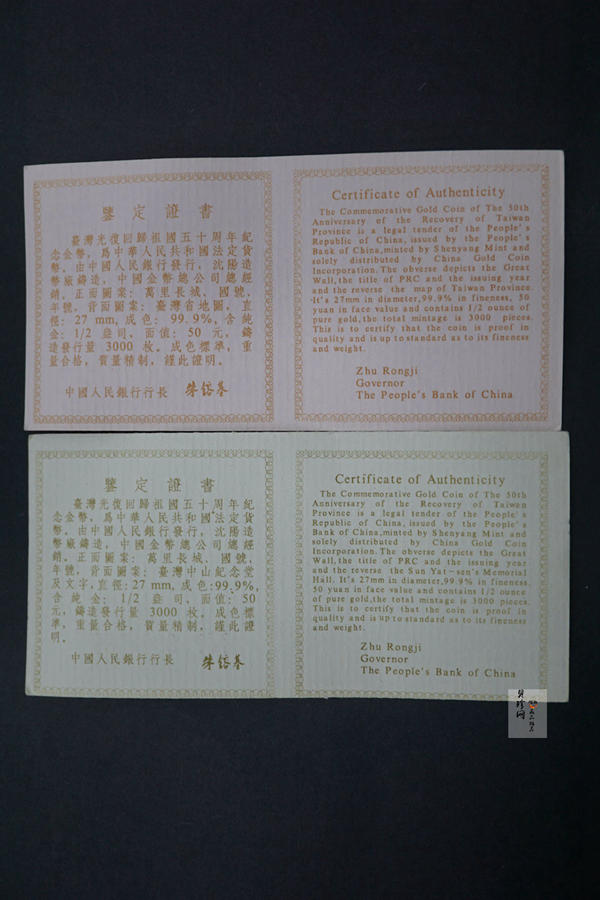 鑒定證書
臺灣光復回歸祖國五十周年紀
念金幣，爲中華人民共和國法定貨
幣。由中國人民銀行發行，沈陽造
幣廠鑄造，中國金幣總公司總經
銷。正面圖案：萬里長城、國號、
年號，背面圖案：臺灣省地圖。直
徑：27 mm，成色：99.9%，含純
金：1/2 盎司，面值：50 元，鑄
造發行量 3000 枚。成色標準，重
量合格，質量精制，謹此證明。
中國人民銀行行長 朱镕基
Certificate of Authenticity
The Commemorative Gold Coin of The 50th
Anniversary of the Recovery of Taiwan
Province is a legal tender of the People's
Republic of China, issued by the People's
Bank of China,minted by Shenyang Mint and
solely distributed by China Gold Coin
Incorporation.The obverse depicts the Great
Wall,the title of PRC and the issuing year
and the reverse the map of Taiwan Province
·It's 27mm in diameter,99.9% in fineness, 50
yuan in face value and contains 1/2 ounce of
pure gold,the total mintage is 3000 pieces.
This is to certify that the coin is proof in
quality and is up to standard as to its fineness
and weight.
Zhu Rongji
Governor
The People's Bank of China
鑒定證書
臺灣光復回歸祖國五十周年紀
念金幣，爲中華人民共和國法定貨
幣。由中國人民銀行發行，沈陽造
幣廠鑄造，中國金幣總公司總經
銷。正面圖案：萬里長城、國號、
年號，背面圖案：臺灣中山紀念堂
及文字，直徑：27 mm，成色：99.9%，
含純金：1/2 盎司，面值：50
元，鑄造發行量 3000 枚。成色標
準，重量合格，質量精制，謹此證
明。
中國人民銀行行長 朱镕基
Certificate of Authenticity
The Commemorative Gold Coin of The 50th
Anniversary of the Recovery of Taiwan
Province is a legal tender of the People's
Republic of China, issued by the People's
Bank of China,minted by Shenyang Mint and
solely distributed by China Gold Coin
Incorporation.The obverse depicts the Great
Wall,the title of PRC and the issuing year
and the reverse the Sun Yat－sen's Memorial
Hall. It's 27mm in diameter,99.9% in fineness,
50 yuan in face value and contains 1/2 ounce
of pure gold,the total mintage is 3000 pieces.
This is to certify that the coin is proof in
quality and is up to standard as to its fineness
and weight.
Zhu Rongji
Governor
The People's Bank of China